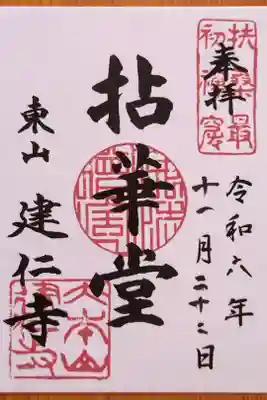 奉拝
令和六年
十一月二十二日
拈華堂
東山 建仁寺
扶桑最初禅窟
大本山建仁寺